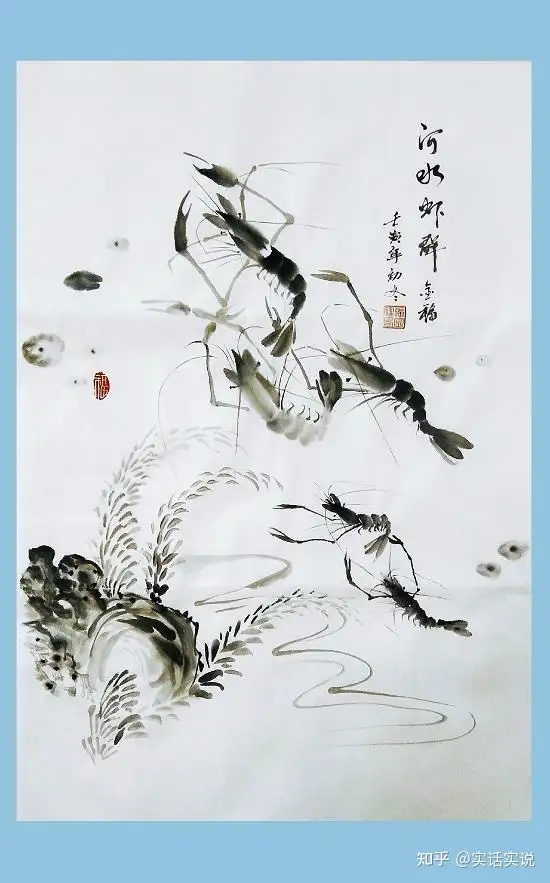 河水虾群 金福
壬寅年初冬
知乎 @实话实说